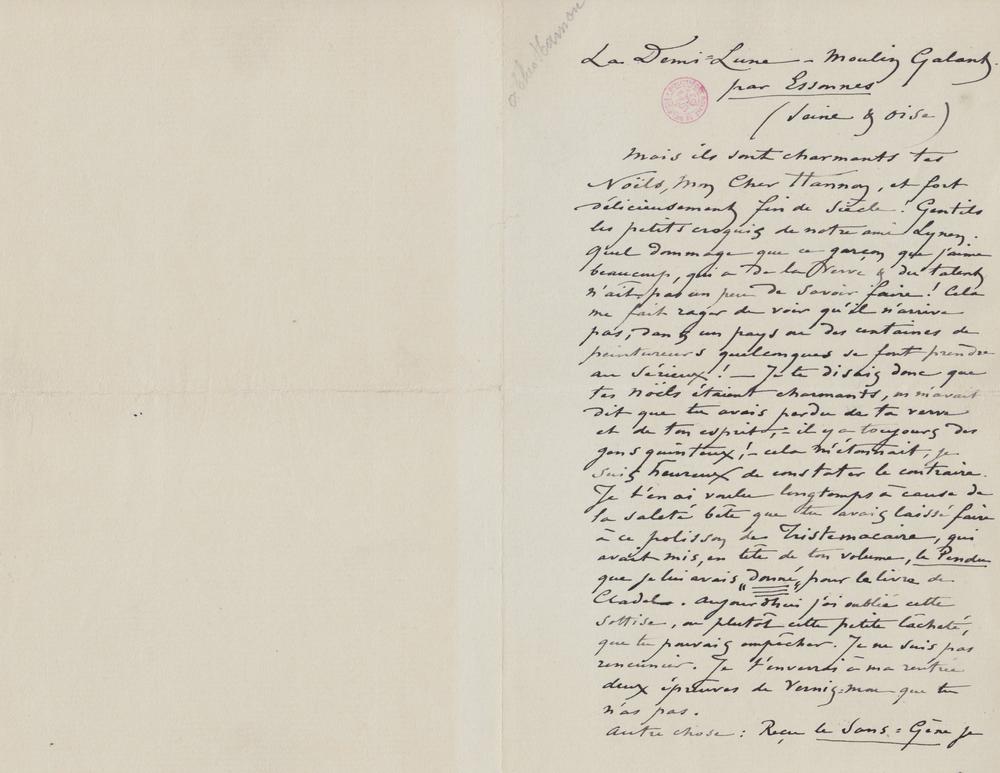 à Théo Hannon
La Demi=Lune – Moulin Galant.
par Essonnes
(Seine & Oise)
Mais ils sont charmants tes
Noëls, Mon Cher Hannon, et fort
délicieusement fin de Siècle ! Gentils
les petits croquis de notre ami Lynen.
Quel dommage que ce garçon que j'aime
beaucoup, qui a de la Verve & du talent
n'ait pas un peu de savoir faire ! Cela
me fait rager de voir qu'il n'arrive
pas, dans un pays ou des centaines de
peintureurs quelconques se font prendre
au sérieux ! — Je te disais donc que
tes Noëls étaient charmants, on m'avait
dit que tu avais perdu de ta verve
et de ton esprit, – il y a toujours des
gens quinteux ! – cela m'étonnait, je
suis heureux de constater le contraire.
Je t'en ai voulu longtemps à cause de
la saleté bête que tu avais laissé faire
à ce polisson de Tristemacaire, qui
avait mis, en tête de ton volume, le Pendu
que je lui avais "donné" pour le livre de
Cladel. Aujourd'hui j'ai oublié cette
sottise, ou plutôt cette petite lâcheté,
que tu pouvais empêcher. Je ne suis pas
rancunier. Je t'enverrai à ma rentrée
deux épreuves de Vernis-mou que tu
n'as pas.
Autre chose : Reçu le Sans=Gêne je